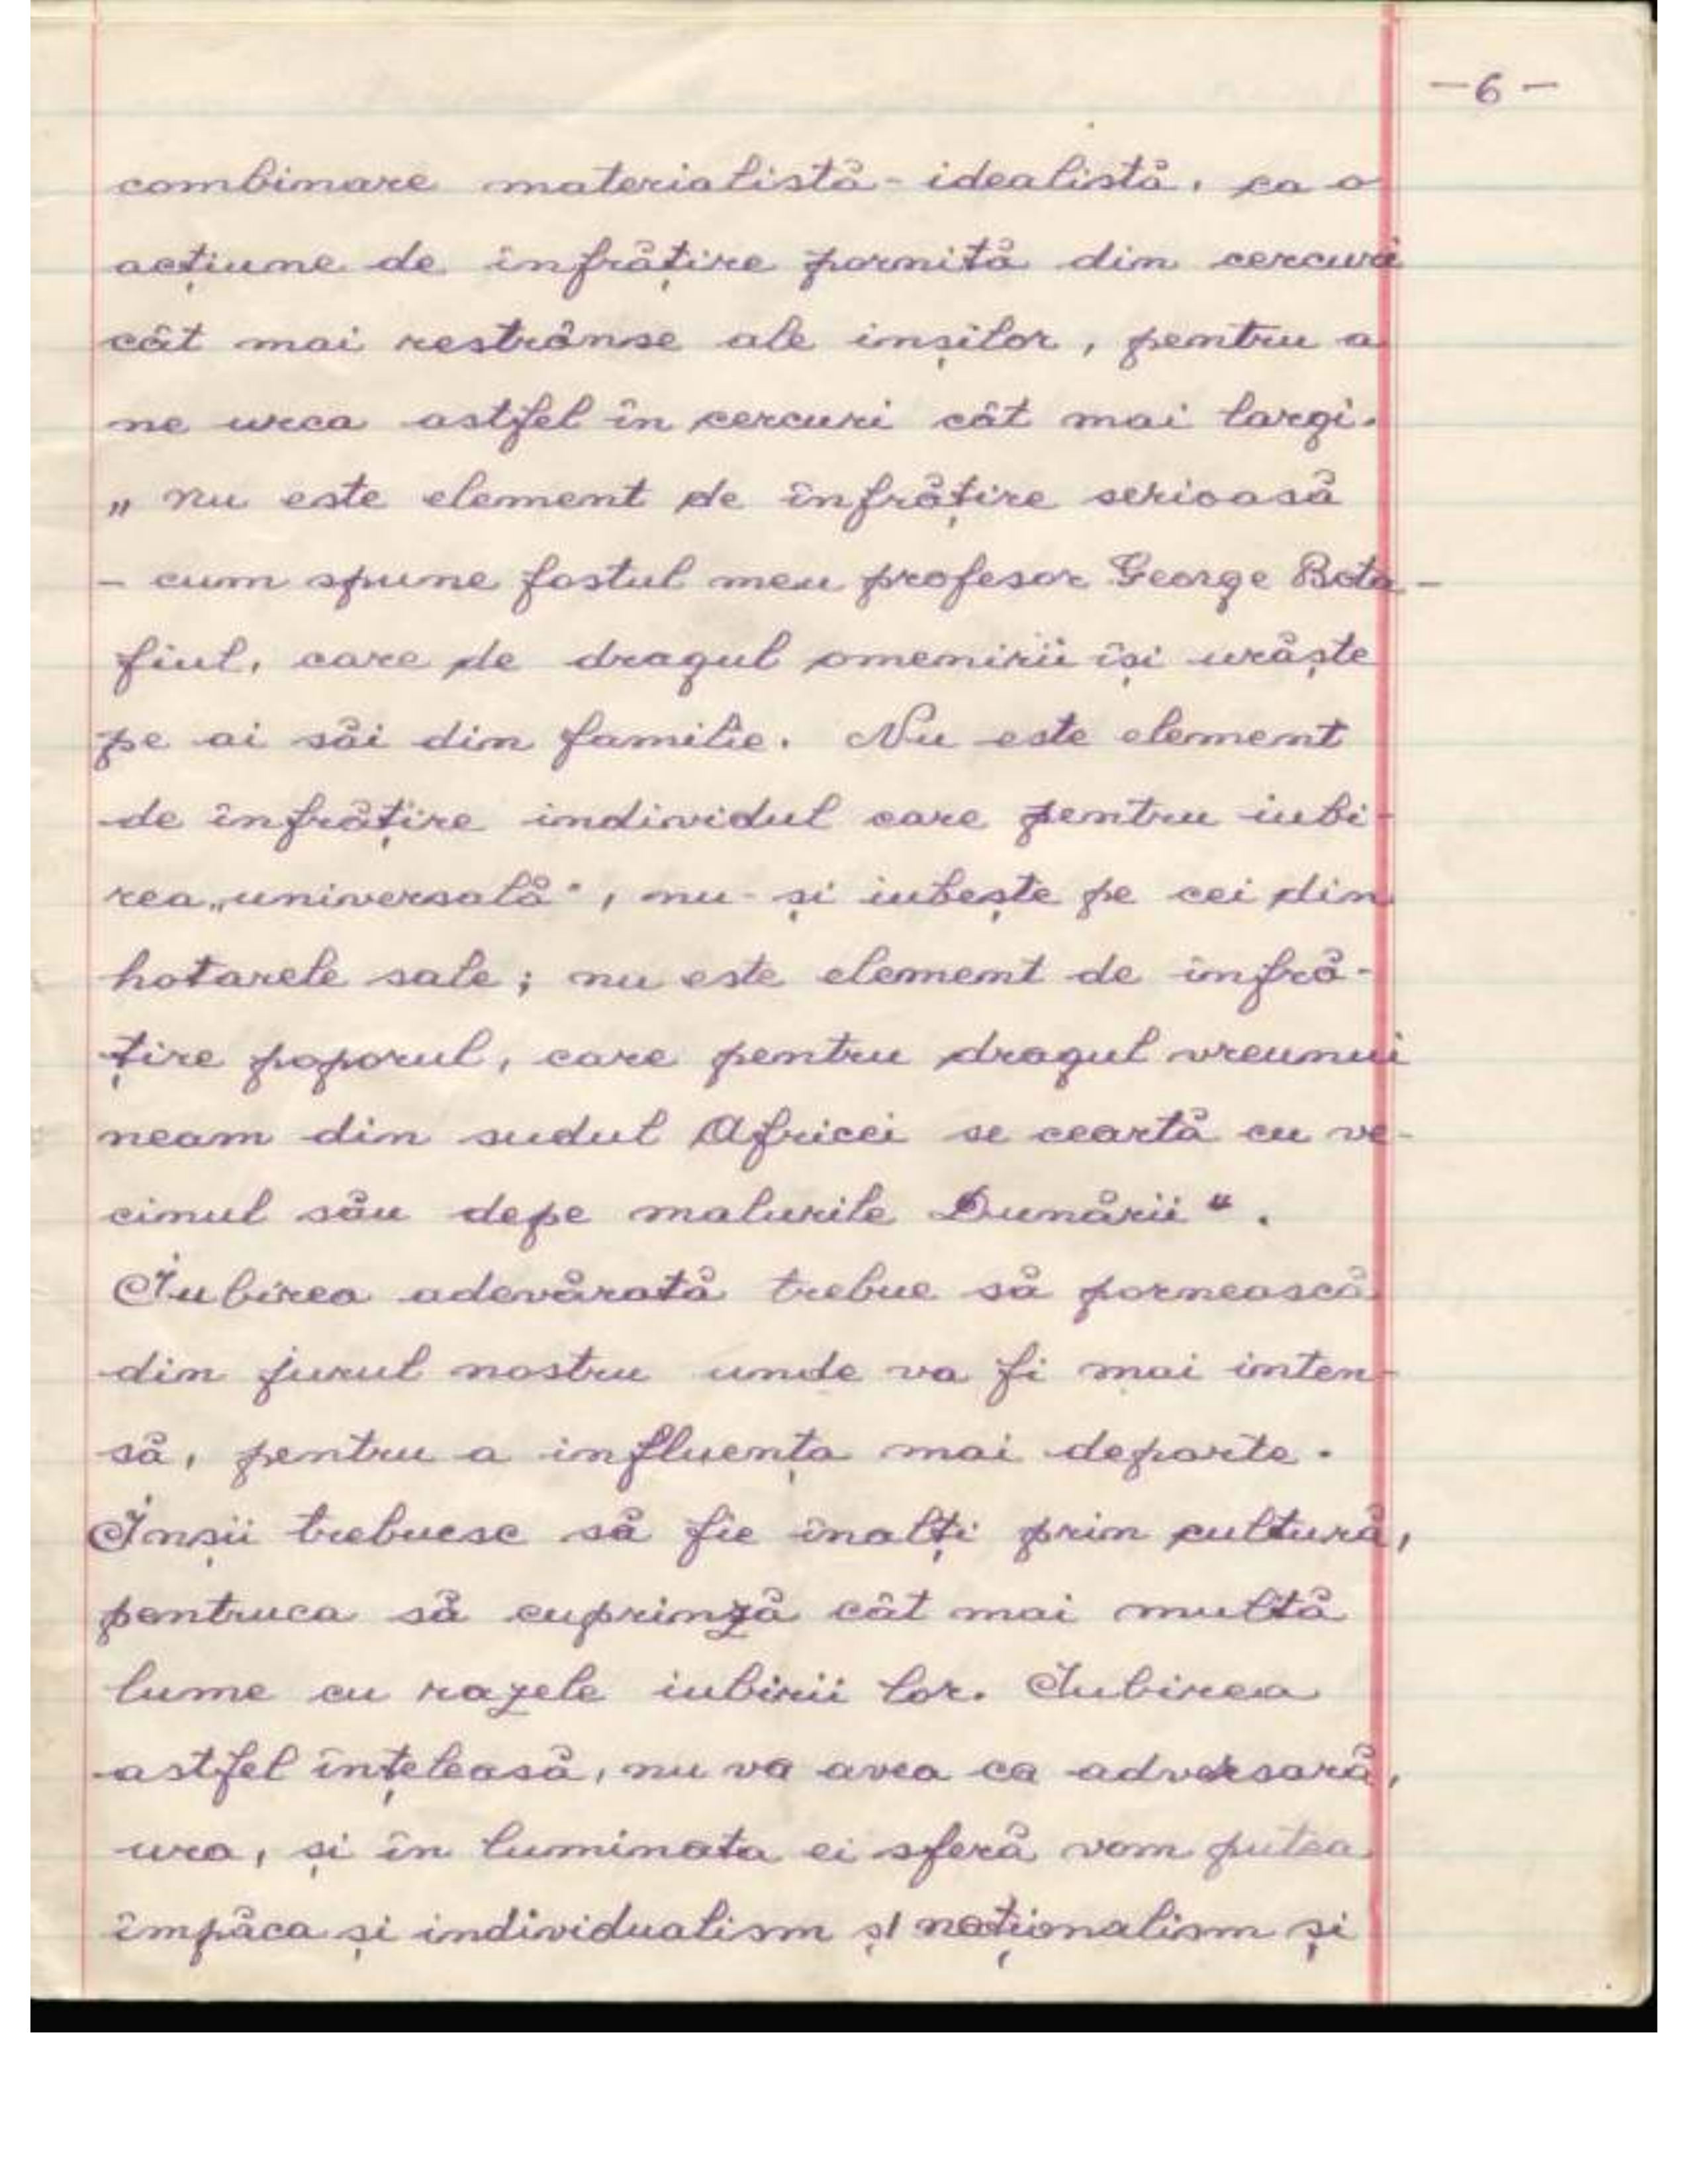 -6-
combinare materialistă-idealistă, ca o
acțiune de înfrățire pornită din cercuri
cât mai restrânse ale inșilor, pentru a
ne urca astfel în cercuri cât mai largi.
„ nu este element de înfrățire serioasă
- cum spune fostul meu profesor George Bota -
fiul, care de dragul omenirii își urăște
pe ai săi din familie. Nu este element
de înfrățire individul care pentru iubi-
rea „universală", nu-și iubește pe cei din
hotarele sale; nu este element de înfră-
țire poporul, care pentru dragul vreunui
neam din sudul Africei se ceartă cu ve-
cinul său depe malurile Dunării".
Iubirea adevărată trebue să pornească
din jurul nostru unde va fi mai inten-
să, pentru a influența mai departe.
Inșii trebuesc să fie înalți prin cultură,
pentruca să cuprinză cât mai multă
lume cu razele iubirii lor. Iubirea
astfel înțeleasă, nu va avea ca adversară,
ura, și în luminata ei sferă vom putea
împăca și individualism și naționalism și